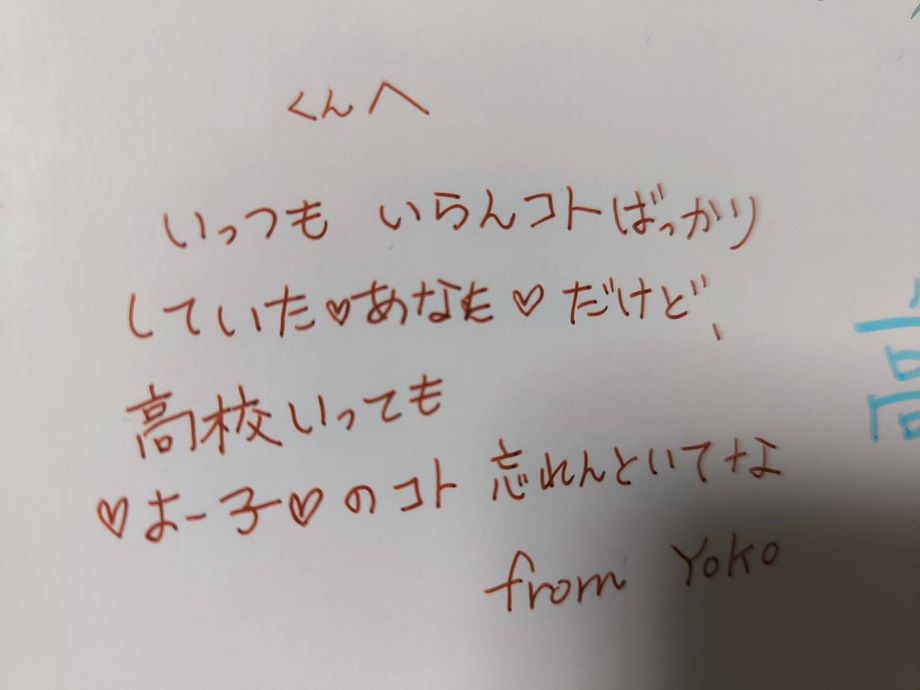 くんへ
いっつも いらんコトばっかり
していた♡あなた♡だけど、
高校いっても
♡よー子♡のコト 忘れんといてな
from Yoko